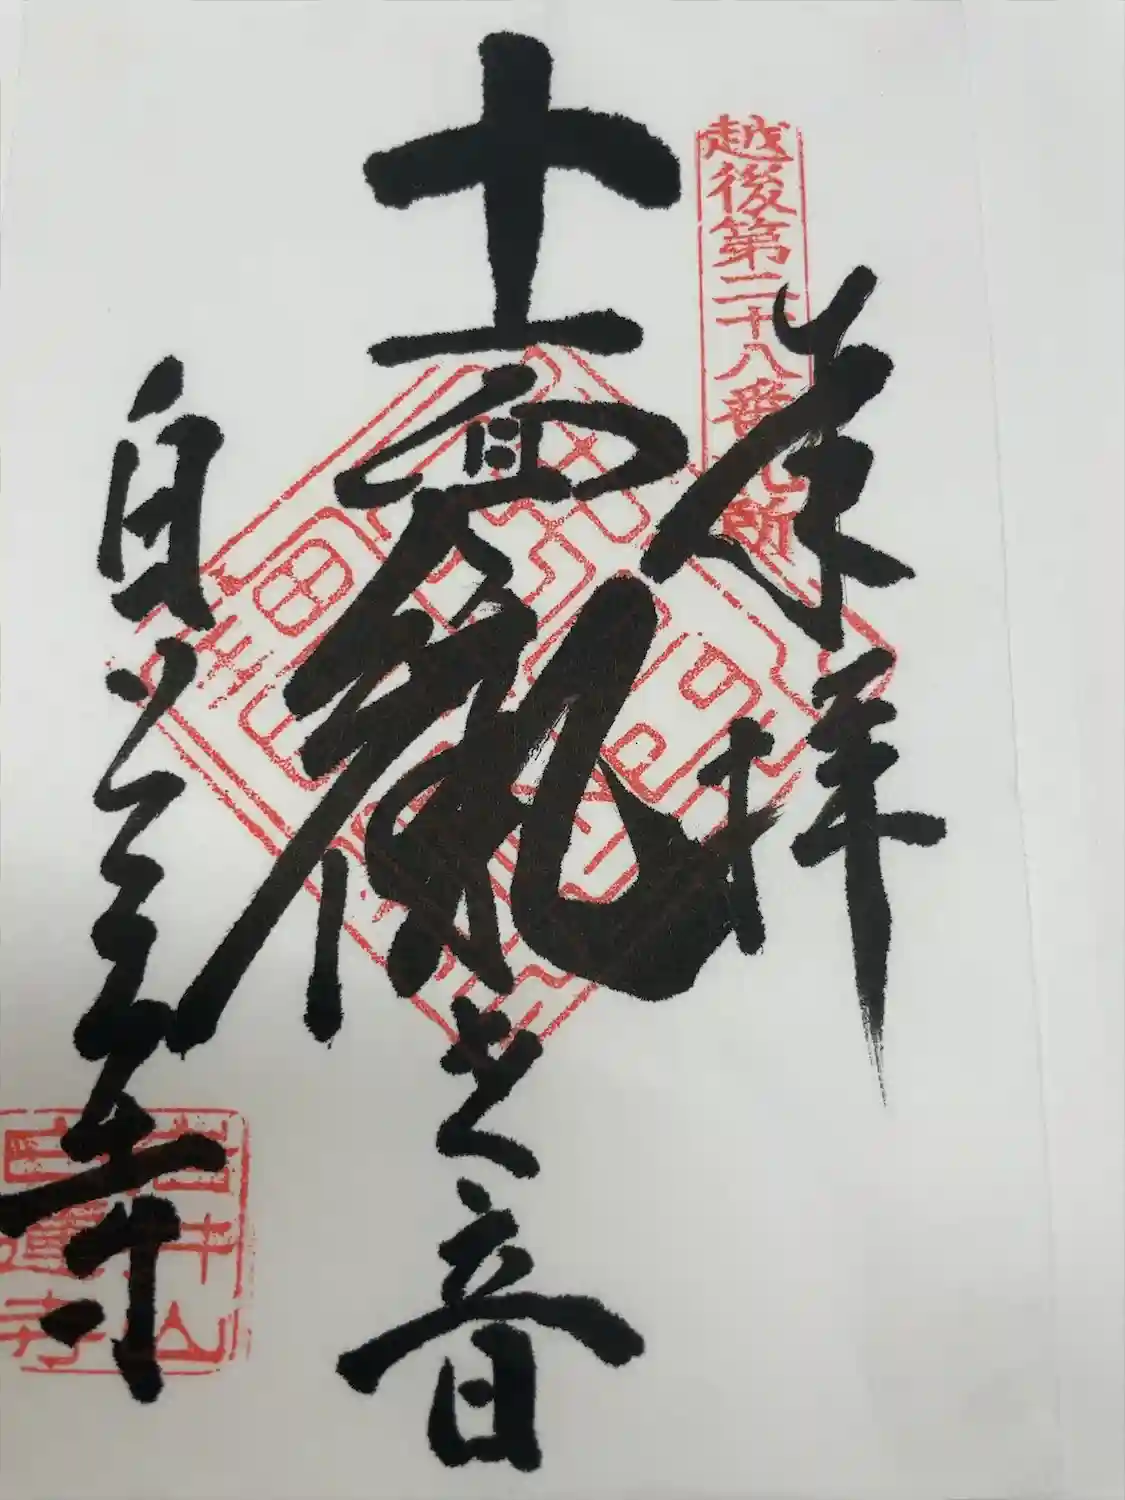 越後第二十八番札所
奉拝
十一面観世音
白蓮寺
岩井山
白蓮寺